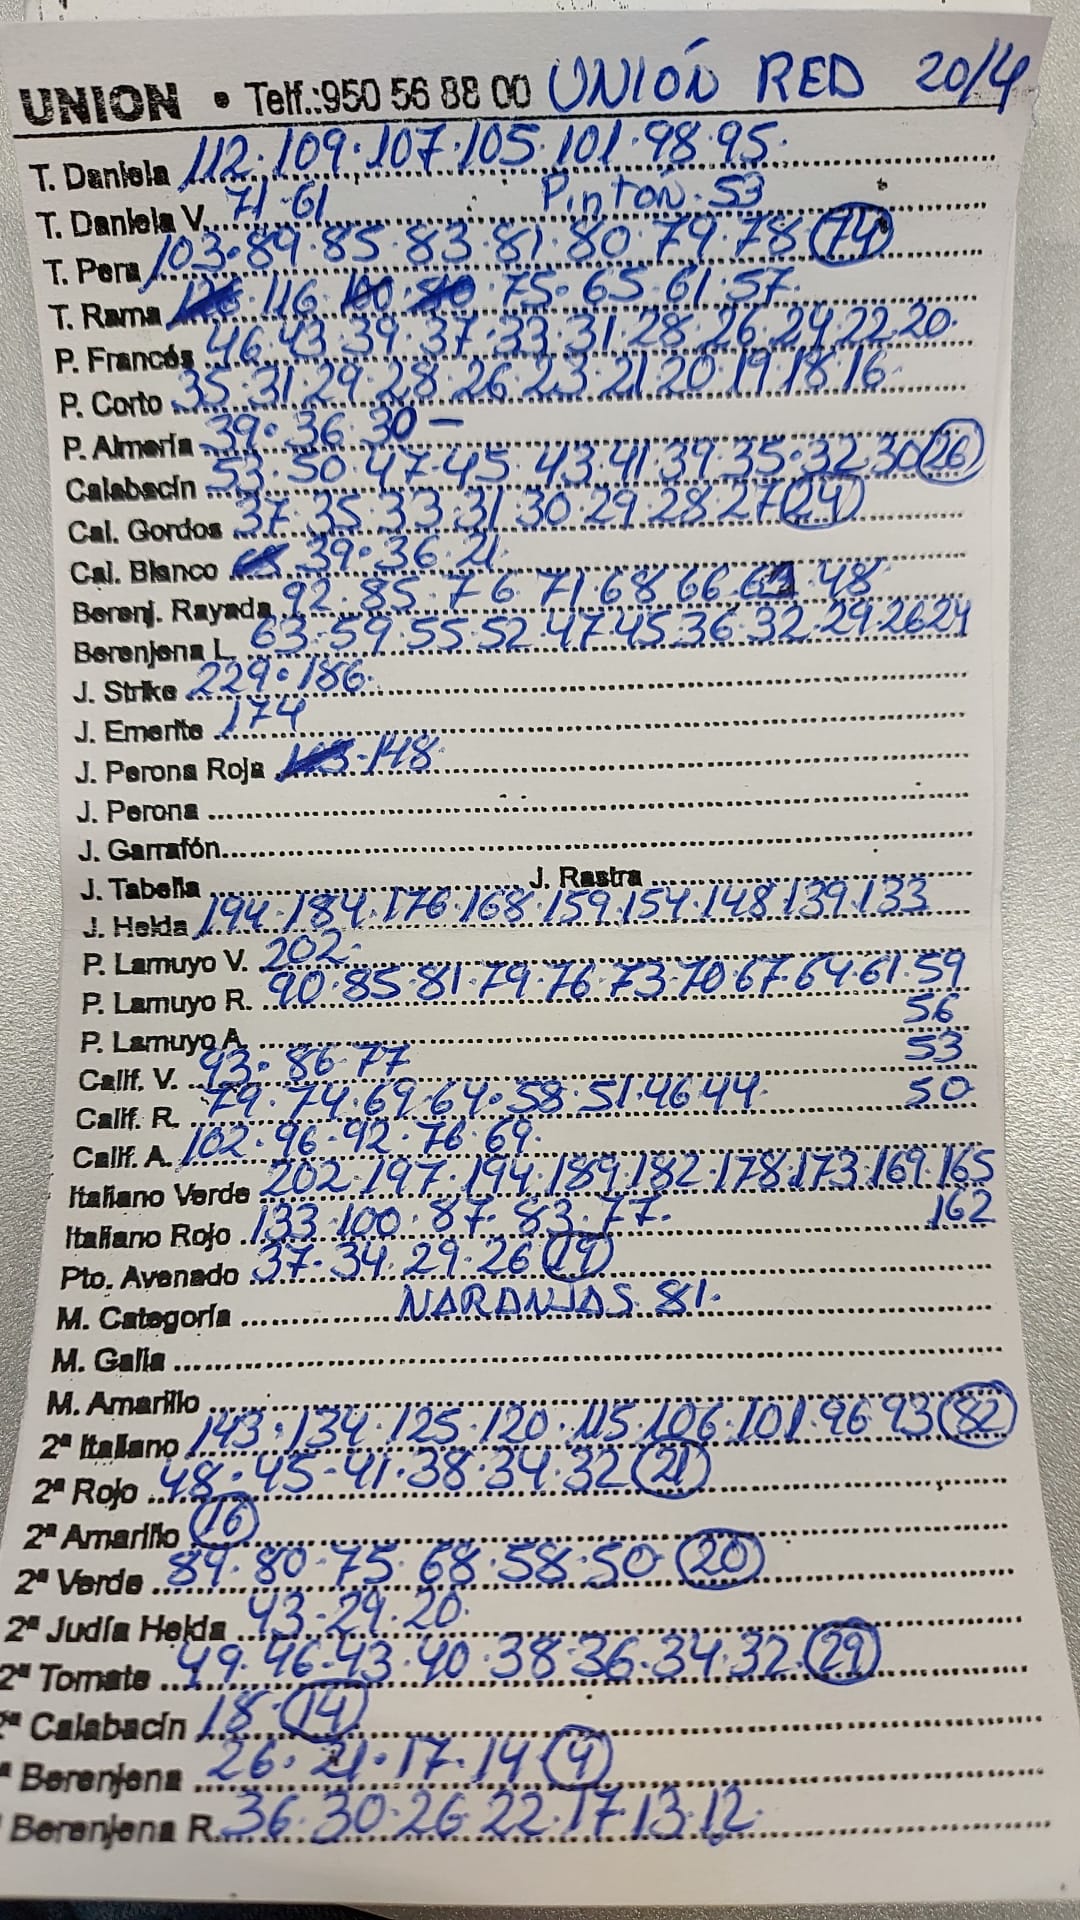 UNION • Telf.:950 56 88 00 UNIÓN RED 20/4
T. Daniela 112·109·107·105·101·98·95·
T. Daniela V. 71·61 Pintón·53
T. Pera 103·89·85·83·81·80·79·78 74
T. Rama 116· 75·65·61·57·
P. Francés 46·43·39·37·33·31·28·26·24·22·20·
P. Corto 35·31·29·28·26·23·21·20·19·18·16
P. Almería 39·36·30–
Calabacín 53·50·47·45·43·41·39·35·32·30 26
Cal. Gordos 37·35·33·31·30·29·28·27 24
Cal. Blanco 39·36·21
Berenj. Rayada 92·85·76·71·68·66· 48
Berenjena L. 63·59·55·52·47·45·36·32·29·26·24
J. Strike 229·186·
J. Emerite 174
J. Perona Roja 148·
J. Perona
J. Garrafón
J. Tabella J. Rastra
J. Helda 194·184·176·168·159·154·148·139·133
P. Lamuyo V. 202·
P. Lamuyo R. 90·85·81·79·76·73·70·67·64·61·59
56
P. Lamuyo A. 53
Calif. V. 93·86·77
Calif. R. 79·74·69·64·58·51·46·44· 50
Calif. A. 102·96·92·76·69·
Italiano Verde 202·197·194·189·182·178·173·169·165
Italiano Rojo 133·100·87·83·77· 162
Pto. Avenado 37·34·29·26 19
M. Categoría NARANJAS 81·
M. Galia
M. Amarillo
2ª Italiano 143·134·125·120·115·106·101·96·93 82
2ª Rojo 48·45·41·38·34·32 21
2ª Amarillo 16
2ª Verde 89·80·75·68·58·50 20
2ª Judía Helda 43·29·20·
2ª Tomate 49·46·43·40·38·36·34·32 29
2ª Calabacín 18· 14
ª Berenjena 26·21·17·14 4
Berenjena R. 36·30·26·22·17·13·12·